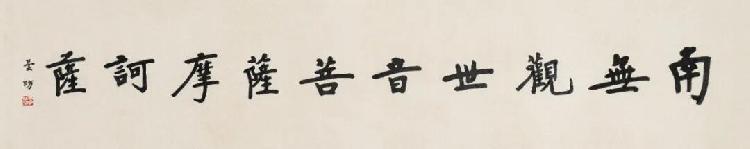 南無觀世音菩薩摩訶薩